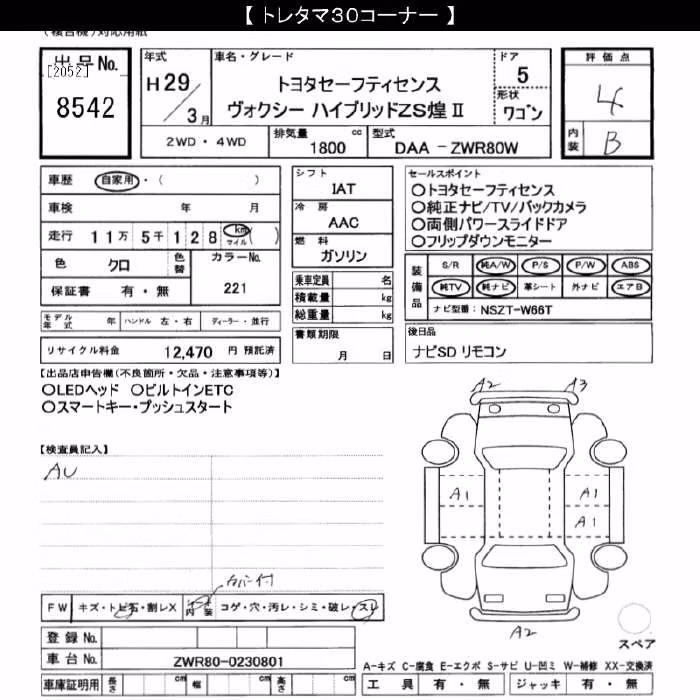 【 トレタマ30コーナー 】
(複合機)対応用紙
出品No.
[2052]
8542
年式
H29/3月
車名・グレード
トヨタセーフティセンス
ヴォクシー ハイブリッドZS煌Ⅱ
ドア
5
形状
ワゴン
評価点
4
内装
B
2WD・4WD
排気量 1800 cc
型式 DAA - ZWR80W
車歴 自家用・( )
車検 年 月
走行 11万 5千128 km マイル ( )
色 クロ 色替 カラーNo.
保証書 有・無 221
モデル年式 年 ハンドル 左・右 ディーラー・並行
リサイクル料金 12,470 円 預託済
シフト
IAT
冷房
AAC
燃料
ガソリン
乗車定員 名
積載量 kg
総重量 kg
書類期限
月 日
セールスポイント
○トヨタセーフティセンス
○純正ナビ/TV/バックカメラ
○両側パワースライドドア
○フリップダウンモニター
装備品
S/R 純A/W P/S P/W ABS
純TV 純ナビ 革シート 外ナビ エアB
ナビ型番: NSZT-W66T
後日品
ナビSD リモコン
【出品店申告欄(不良箇所・欠品・注意事項等)】
○LEDヘッド ○ビルトインETC
○スマートキー・プッシュスタート
【検査員記入】
AU
カバー付
FW キズ・トビ石・割レX 内装 コゲ・穴・汚レ・シミ・破レ・スレ
登録No.
車台No. ZWR80-0230801
車庫証明用 長さ cm 幅 cm 高さ cm
A2 A3
A1 A1
A1
A2
スペア
A-キズ C-腐食 E-エクボ S-サビ U-凹ミ W-補修 XX-交換済
工具 有・無 ジャッキ 有・無